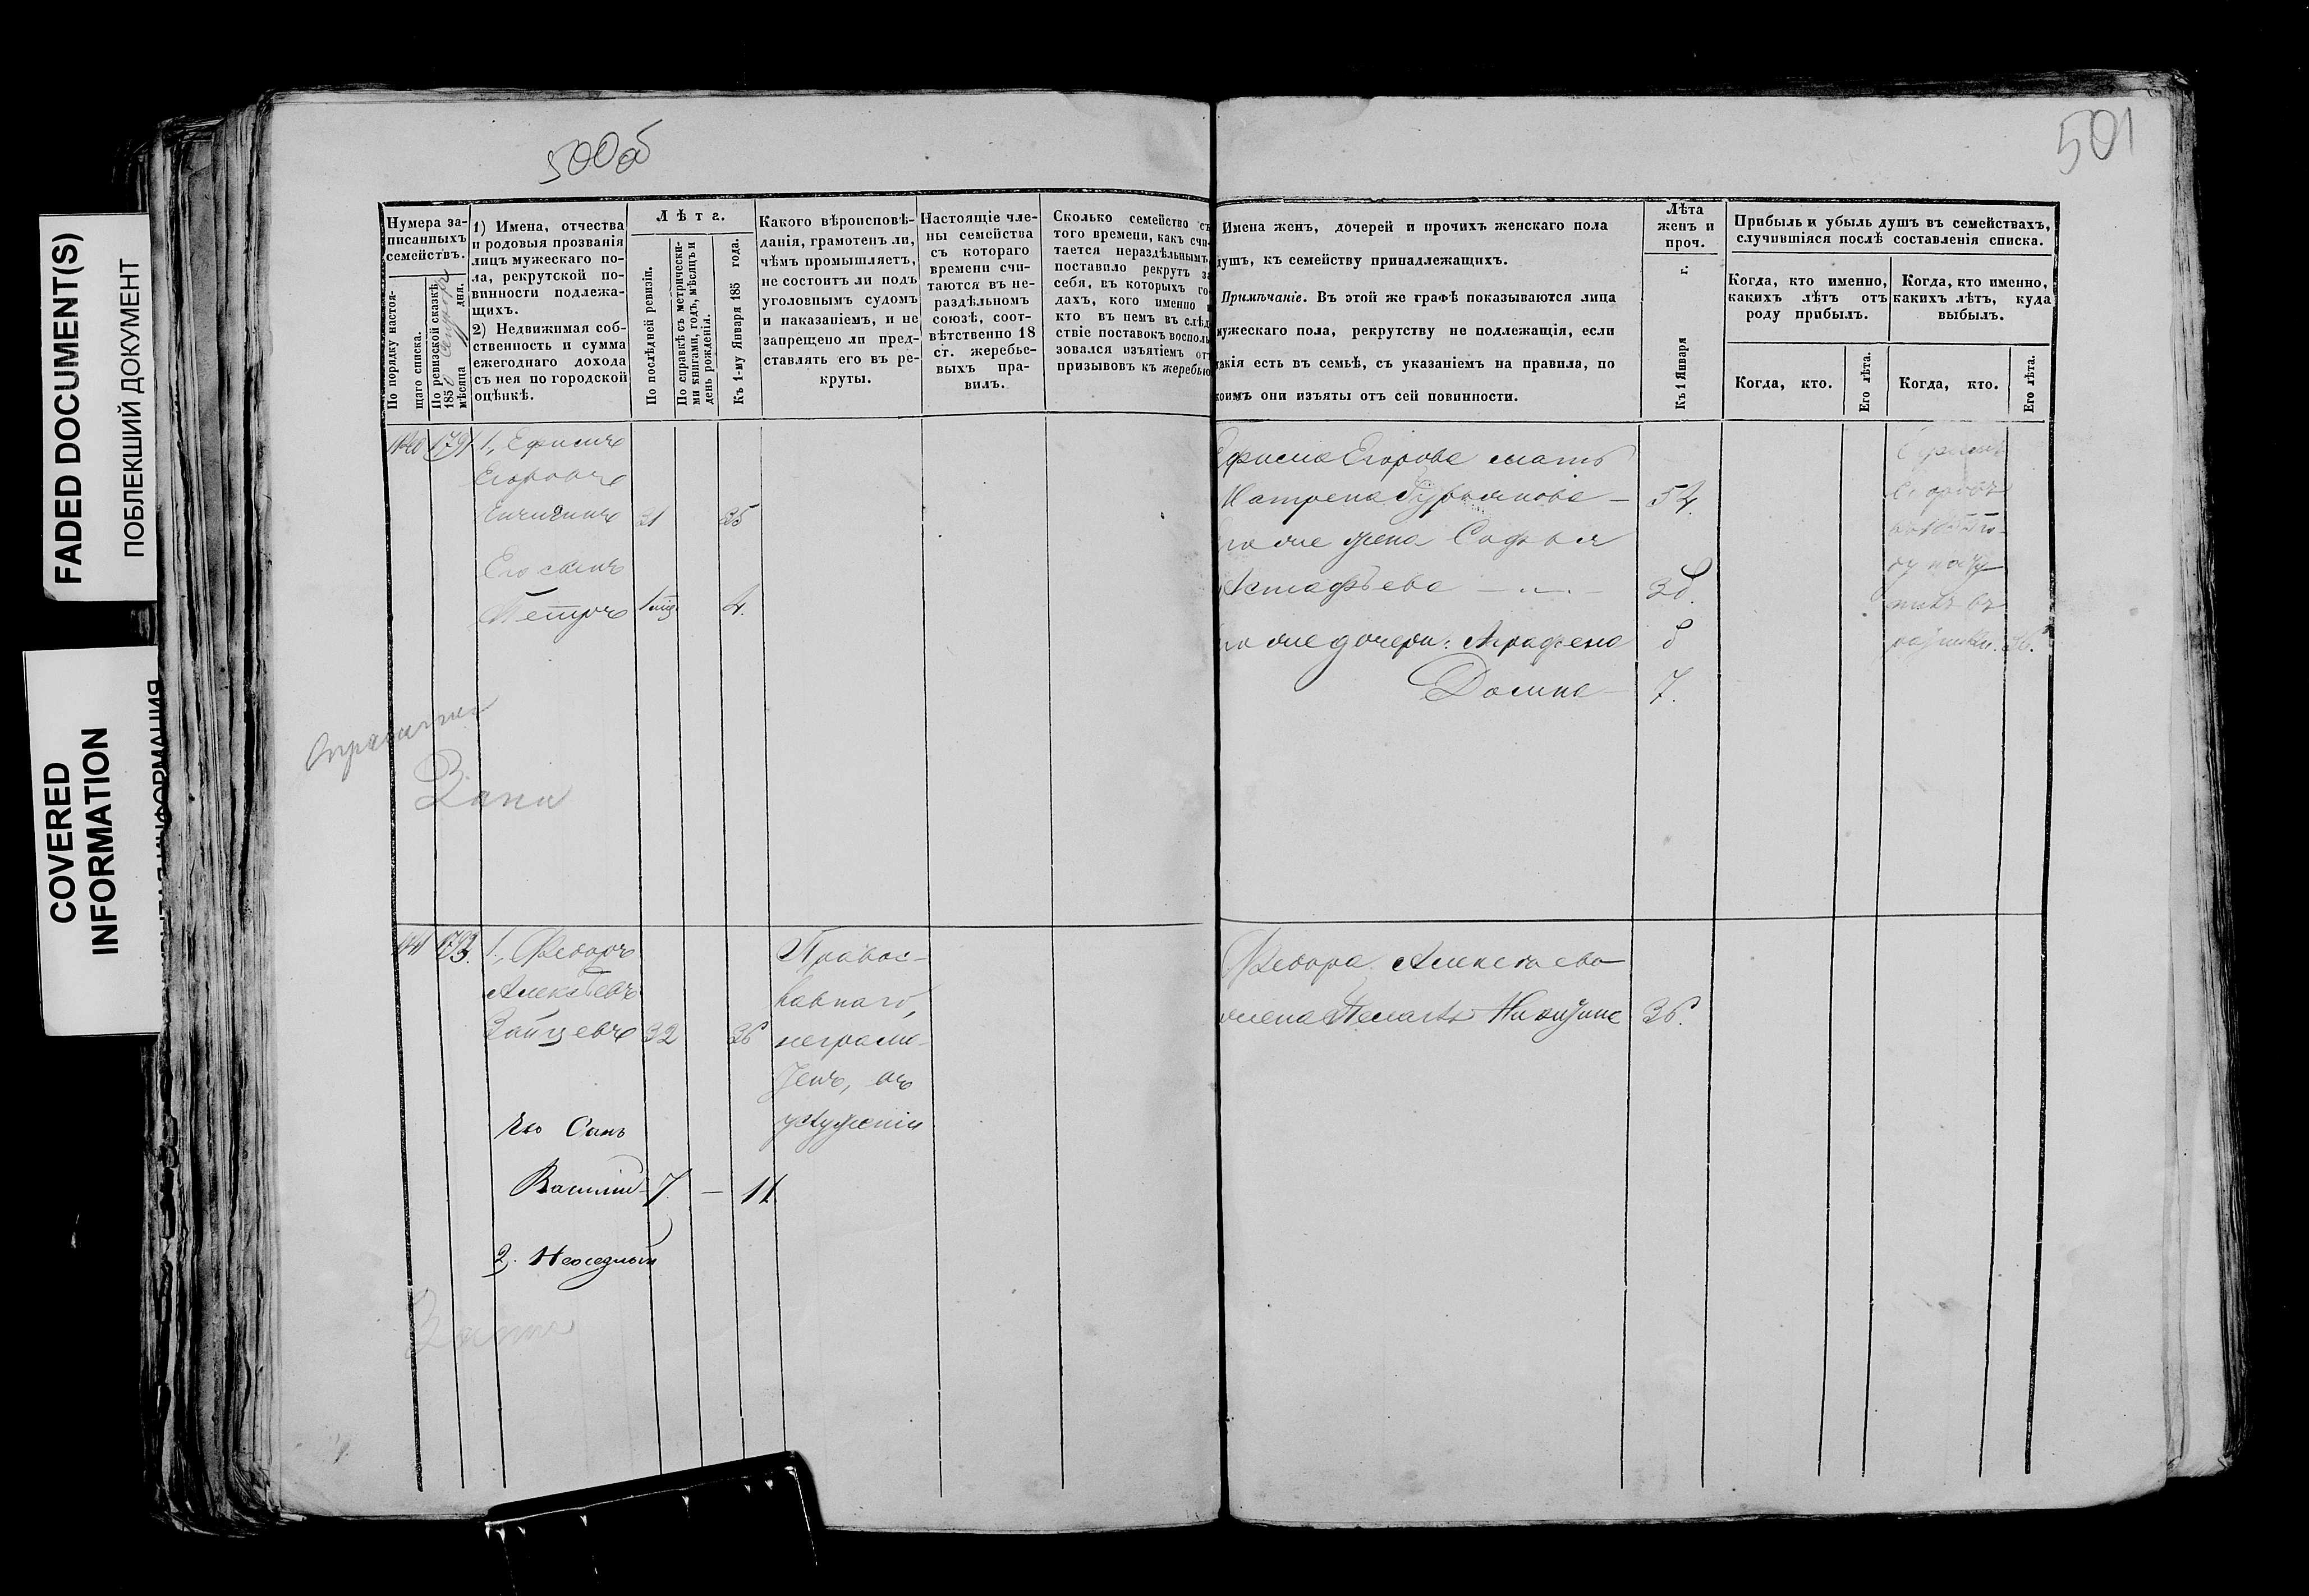 FADED DOCUMENT(S)
ПОБЛЕКШИЙ ДОКУМЕНТ
COVERED
INFORMATION
500об
501
Нумера за-
писанныхъ
семействъ.
По порядку настоя-
щаго списка.
По ревизской сказкѣ
185 мѣсяца дня.
1) Имена, отчества
и родовыя прозванія
лицъ мужескаго по-
ла, рекрутской по-
винности подлежа-
щихъ.
2) Недвижимая соб-
ственность и сумма
ежегоднаго дохода
съ нея по городской
оцѣнкѣ.
Лѣта.
По послѣдней ревизіи.
По справкѣ съ метрически-
ми книгами, годъ, мѣсяцъ и
день рожденія.
Къ 1-му Января 185 года.
Какого вѣроисповѣ-
данія, грамотенъ ли,
чѣмъ промышляетъ,
не состоитъ ли подъ
уголовнымъ судомъ
и наказаніемъ, и не
запрещено ли пред-
ставлять его въ ре-
круты.
Настоящіе чле-
ны семейства
съ котораго
времени счи-
таются въ не-
раздѣльномъ
союзѣ, соот-
вѣтственно 18
ст. жеребье-
выхъ пра-
вилъ.
Сколько семейство съ
того времени, какъ счи-
тается нераздѣльнымъ,
поставило рекрутъ за
себя, въ которыхъ го-
дахъ, кого именно и
кто въ немъ въ слѣд
ствіе поставокъ восполь
зовался изъятіемъ отъ
призывовъ къ жеребью
Имена женъ, дочерей и прочихъ женскаго пола
душъ, къ семейству принадлежащихъ.
Примѣчаніе. Въ этой же графѣ показываются лица
мужескаго пола, рекрутству не подлежащія, если
такія есть въ семьѣ, съ указаніемъ на правила, по
коимъ они изъяты отъ сей повинности.
Лѣта
женъ и
проч.
Къ 1 Января г.
Прибыль и убыль душъ въ семействахъ,
случившіяся послѣ составленія списка.
Когда, кто именно,
какихъ лѣтъ отъ
роду прибылъ.
Когда, кто именно,
какихъ лѣтъ, куда
выбылъ.
Когда, кто.
Его лѣта.
Когда, кто.
Его лѣта.
1791 1., Ефимъ
Егоровъ
31 35
Его сынъ
Петръ 4.
Ефима Егорова мать
Матрена 54.
его же жена Софья
Астафьева 38.
его же дочери: Аграфена 8
Домна 7.
Ефимъ
Егоровъ
1793. 1., Федоръ
Алексѣевъ
Зайцевъ 32 36
Его Сынъ
Василій 7. — 11
2). Неоседлый
Правос-
лавнаго,
неграмо-
тенъ, въ
услуженіи
Федора Алексѣева
жена Пелагѣя Никитина 36.